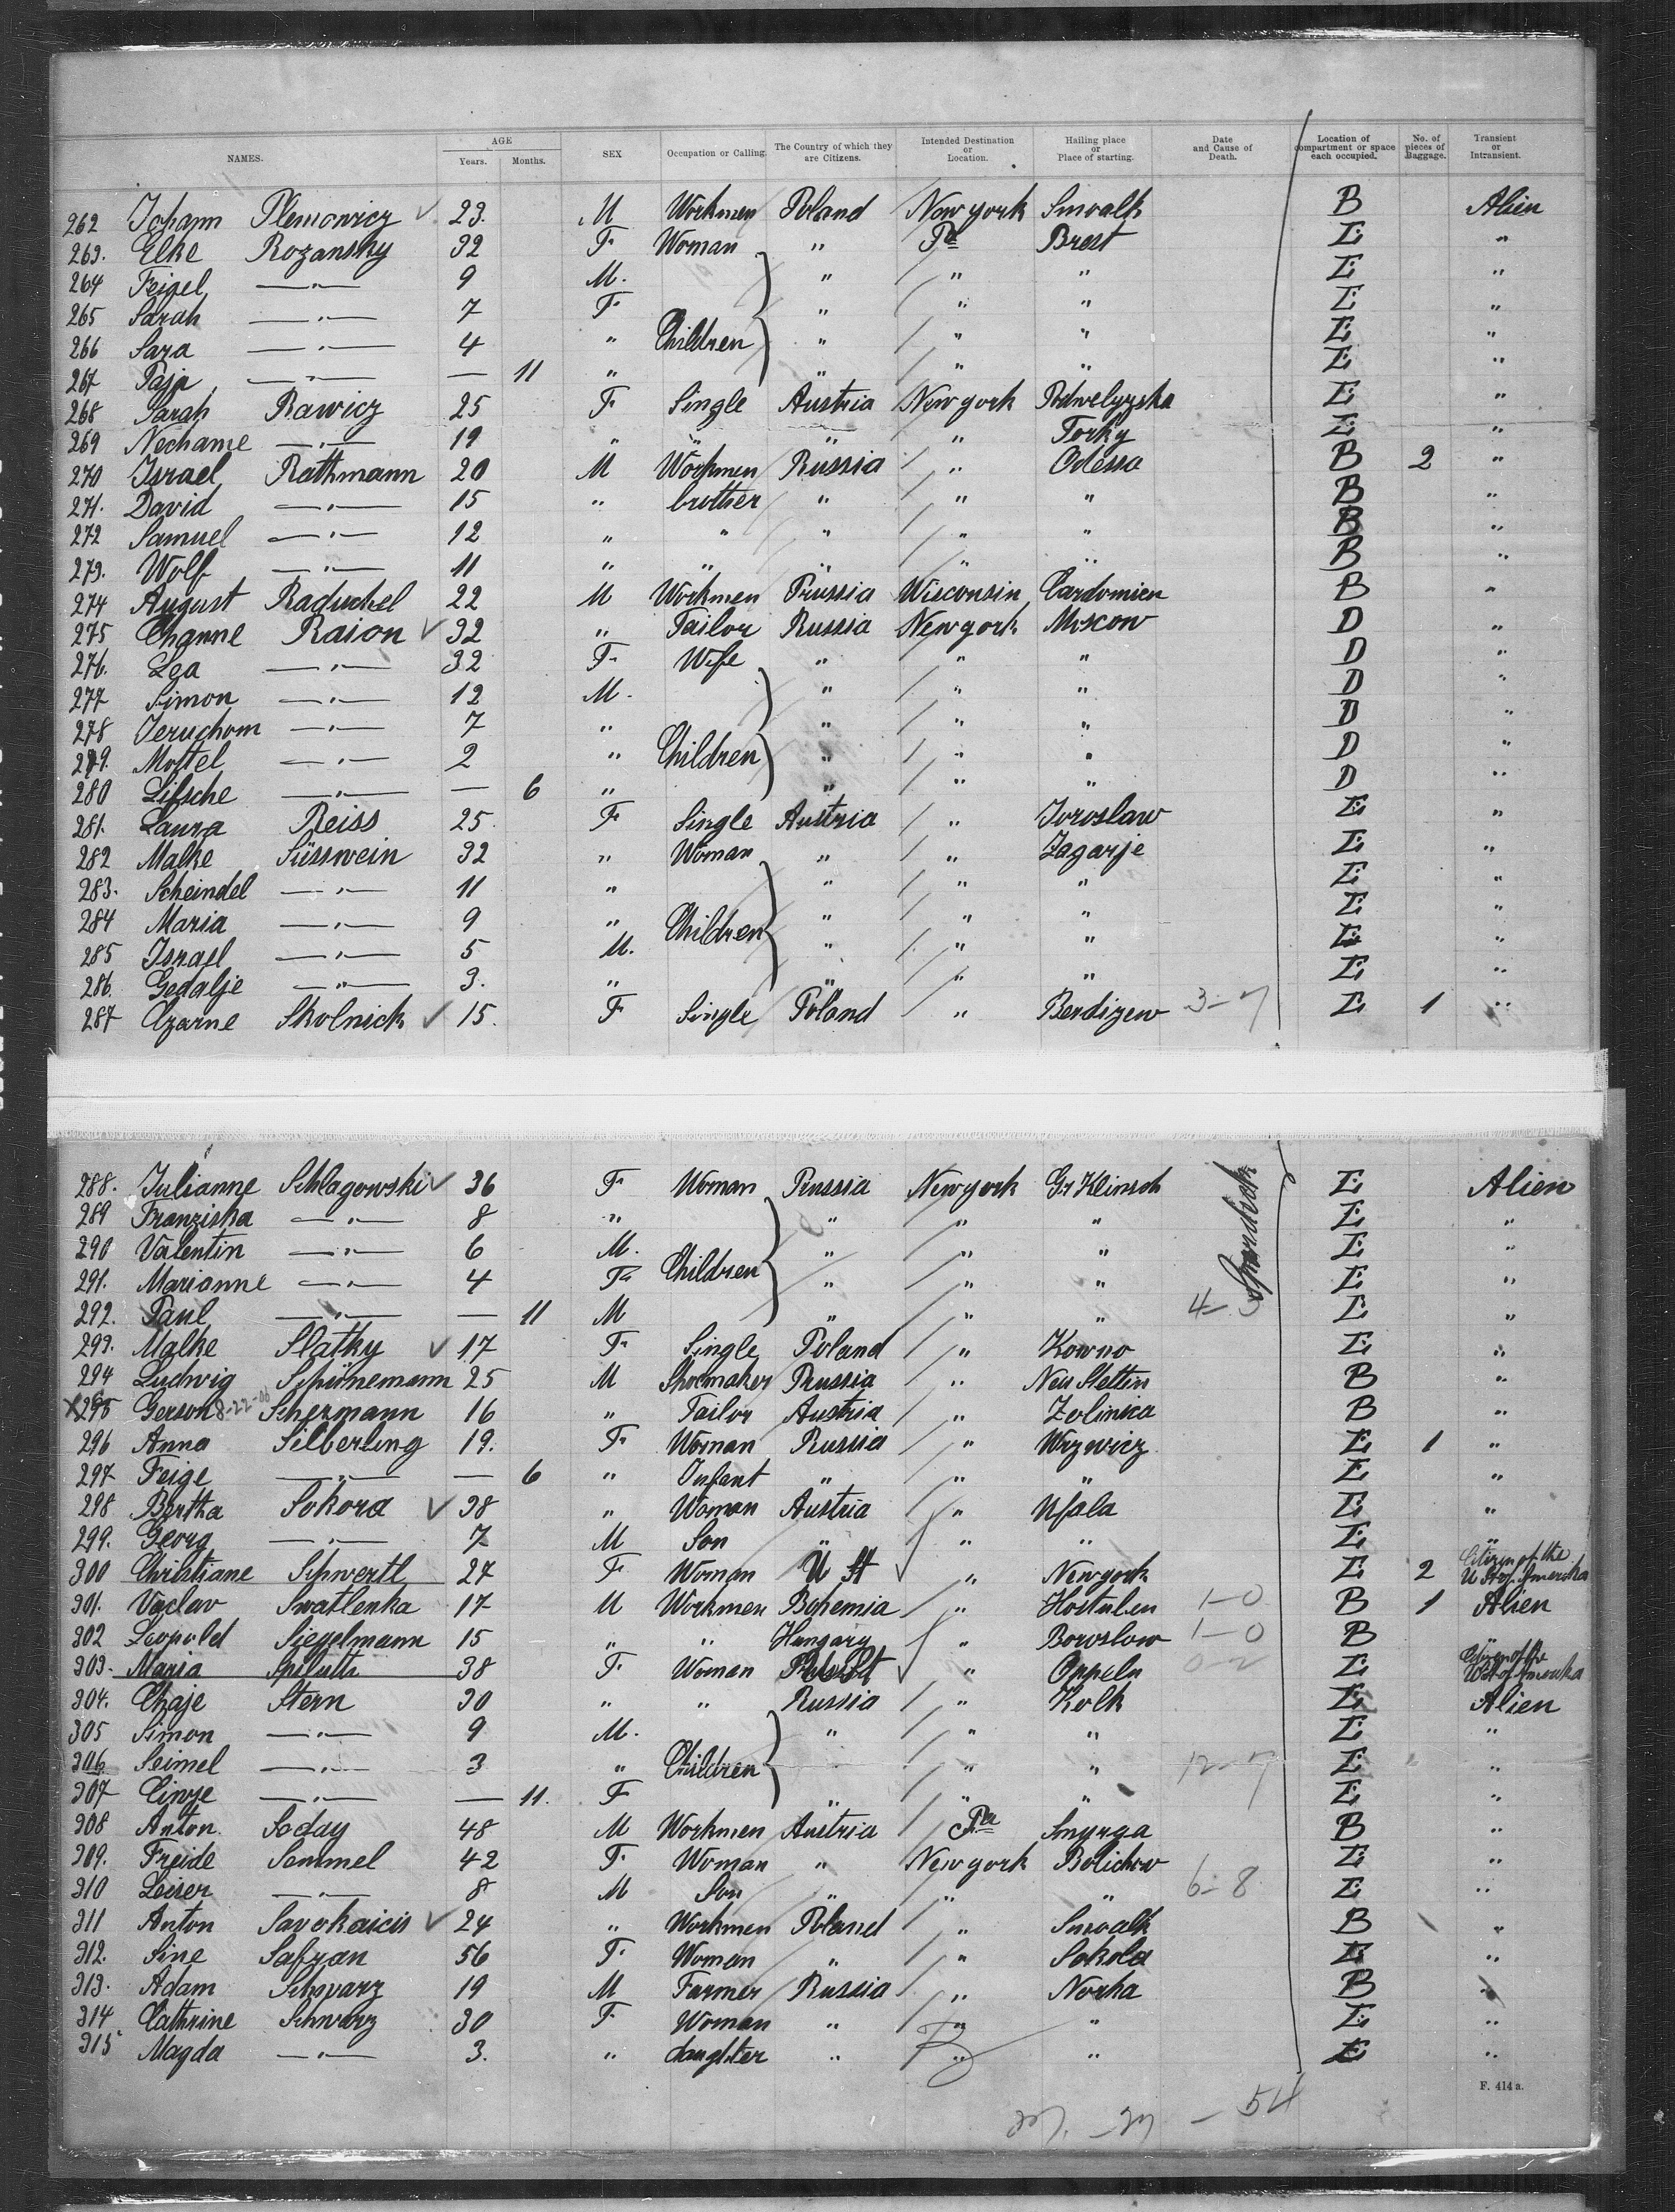 NAMES. AGE Years. Months. SEX Occupation or Calling. The Country of which they are Citizens. Intended Destination or Location. Hailing place or Place of starting. Date and Cause of Death. Location of compartment or space each occupied. No. of pieces of Baggage. Transient or Intransient.
262 Johann Plemowicz 23. M Workmen Poland New york Suwalk B Alien
263. Elke Rozansky 32 F Woman " Pa Brest E "
264 Feigel —"— 9 M. " " " E "
265 Sarah —"— 7 F " " " E "
266 Sara —"— 4 " Children " " " E "
267 Paja —"— — 11 " " " " E "
268 Sarah Rawicz 25 F Single Austria New york E "
269 Nechame —"— 19 " " " " Torky E "
270 Israel Rathmann 20 M Workmen Russia " Odessa B 2 "
271. David —"— 15 " brother " " " B "
272 Samuel —"— 12 " " " " " B "
273. Wolf —"— 11 " " " " " B "
274 August Raduchel 22 M Workmen Prussia Wisconsin Cardomien B "
275 Channe Raion 32 " Tailor Russia New york Moscow D "
276. Lea —"— 32 F Wife " " " D "
277 Simon —"— 12 M. " " " D "
278 Jeruchom —"— 7 " " " " D "
279. Mostel —"— 2 " Children " " " D "
280 Lifsche —"— — 6 " " " " D "
281. Laura Reiss 25 F Single Austria " Joroslaw E "
282 Malke Süsswein 32 " Woman " " Zagarje E "
283. Scheindel —"— 11 " " " " E "
284 Maria —"— 9 " Children " " " E "
285 Israel —"— 5 M. " " " E "
286. Gedalje —"— 3. " " " " E "
287 Czarne Skolnick 15. F Single Poland " Berdizew 3-7 E 1 "
288. Julianne Schlagowski 36 F Woman Russia New york Gr Klinsch E Alien
289 Franziska —"— 8 " " " " E "
290 Valentin —"— 6 M. " " " E "
291. Marianne —"— 4 F Children " " " E "
292. Paul —"— — 11 M " " " E "
293. Malke Slatky 17 F Single Poland " Kowno E "
294 Ludwig Schünemann 25 M Shoemaker Prussia " Neu Stettin B "
X295 Gerson Schermann 16 " Tailor Austria " Zelinka B "
296 Anna Silberling 19. F Woman Russia " E 1 "
297 Feige —"— — 6 " Infant " " " E "
298 Bertha Sokora 38 " Woman Austria " E "
299. Georg —"— 7 M Son " " " E "
300 Christiane Schwertl 27 F Woman U St " New york E 2 Citizen of the U St of Amerika
301. Vaclav Swatlenka 17 M Workmen Bohemia " Hostulen 1-0 B 1 Alien
302 Leopold Siegelmann 15 " " Hungary " Boroslow 1-0 B "
303. Maria 38 F Woman " Oppeln 0-2 E Citizen of the U St of Amerika
304. Chaje Stern 30 " " Russia " Kolk E Alien
305 Simon —"— 9 M. " " " E "
306 Seimel —"— 3 " Children " " 12-7 E "
307 Cinze —"— — 11. F " " " E "
308 Anton Soday 48 M Workmen Austria Pa Smyrga B "
309. Freide Semmel 42 F Woman " New york Bolichow E "
310 Leiser —"— 8 M Son " " " 6-8 E "
311 Anton Savokaicis 24 " Workmen Poland " Suwalk B "
312. Sine Safran 56 F Woman " " Sokola E "
313. Adam Schwarz 19 M Farmer Russia " Norka B "
314 Cathrine Schwarz 30 F Woman " " " E "
315 Magda —"— 3. " daughter " " " E "
F. 414 a.
54